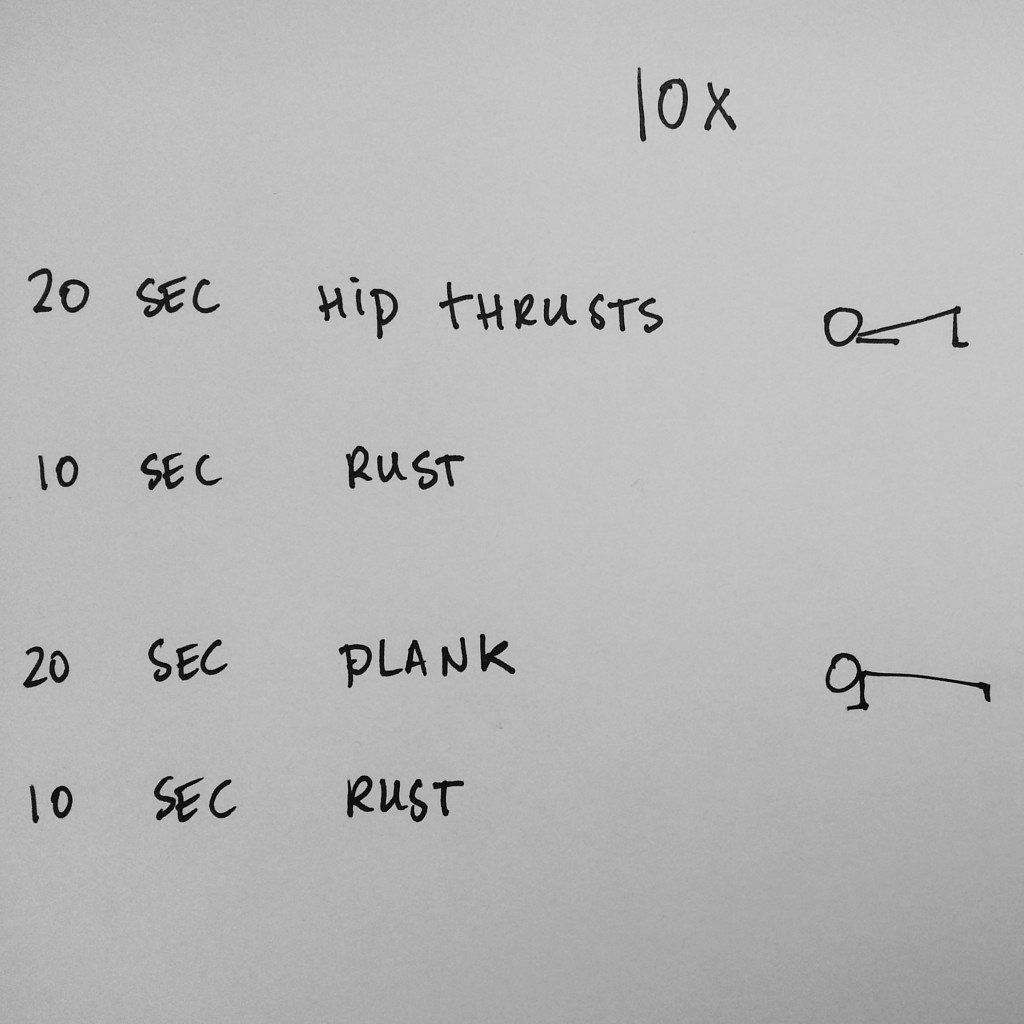 10X
20 SEC HIP THRUSTS
10 SEC RUST
20 SEC PLANK
10 SEC RUST